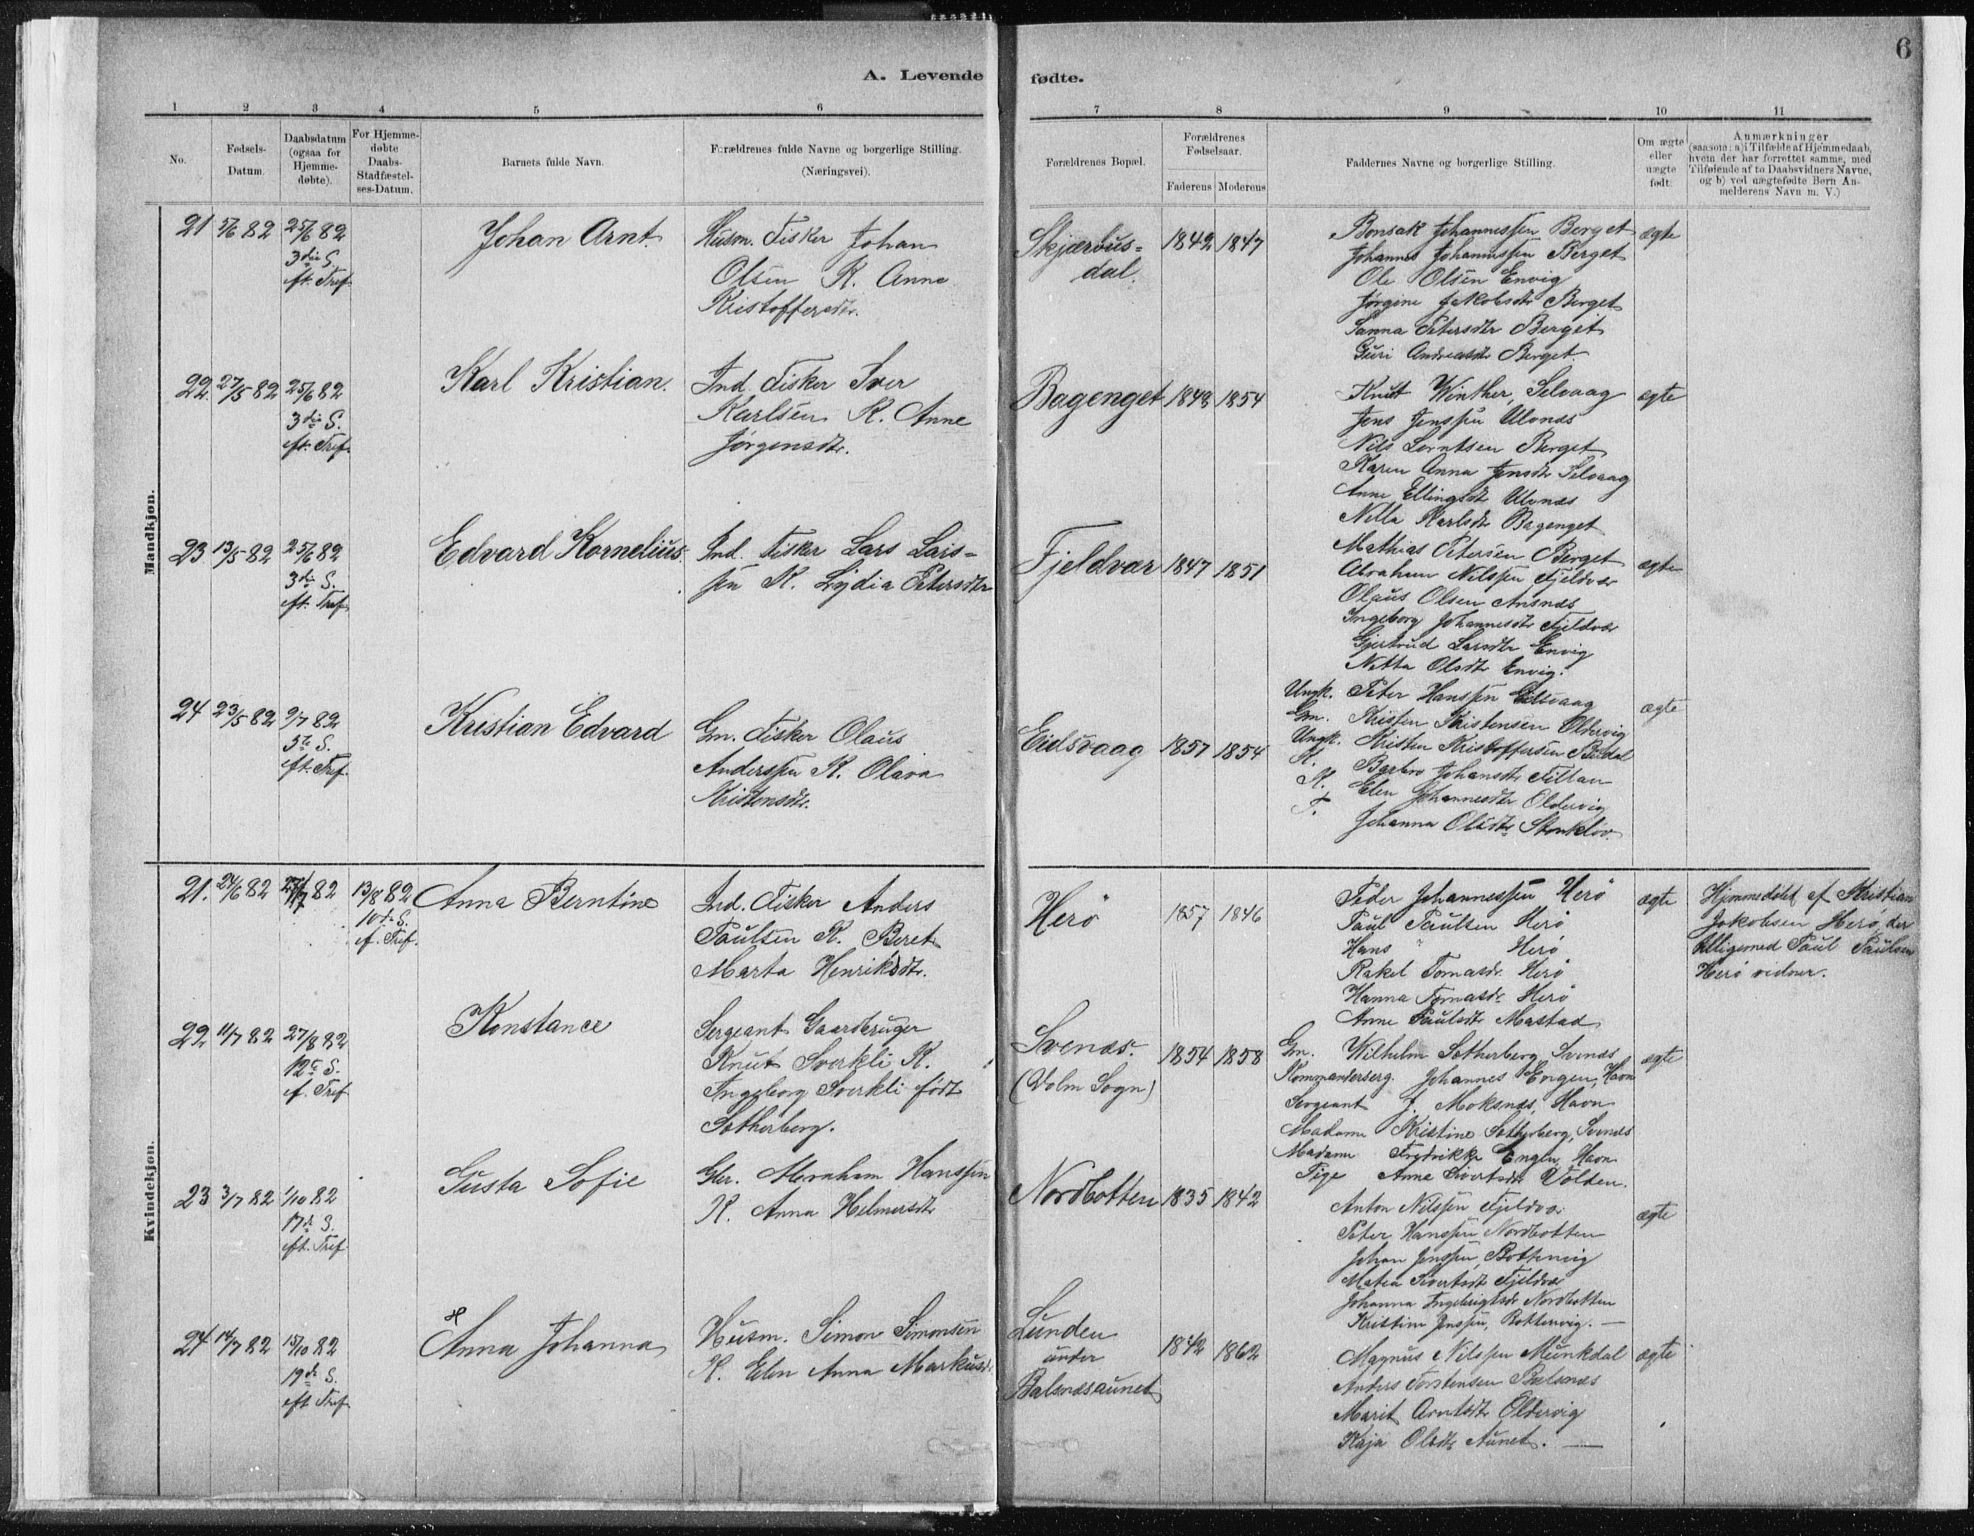 6
A. Levende fødte.
1 2 3 4 5 6 7 8 9 10 11
No.
Fødsels-
Datum.
Daabsdatum
(ogsaa for
Hjemme-
døbte).
For Hjemme-
døbte
Daabs-
Stadfæstel-
ses-Datum.
Barnets fulde Navn.
Forældrenes fulde Navne og borgerlige Stilling.
(Næringsvei).
Forældrenes Bopæl.
Forældrenes
Fødselsaar.
Faderens
Moderens
Faddernes Navne og borgerlige Stilling.
Om ægte
eller
uægte
født.
Anmærkninger
(saasom: a) i Tilfælde af Hjemmedaab,
hvem der har forrettet samme, med
Tilføiende af to Daabsvidners Navne,
og b) ved uægtefødte Børn An-
melderens Navn m. V.)
Mandkjøn.
21 5/6 82
25/6 82
3die S.
eft. Tref.
Johan Arnt.
Husm. Fisker Johan
Olsen K. Anne
Kristoffersdtr.
Skjærvus-
dal.
1842 1847
Bonsak Johannessen Berget
Johannes Johannessen Berget
Ole Olsen Envig
Jørgine Jakobsdtr Berget
Sanna Petersdtr Berget
Guri Andreasdtr Berget
ægte
22. 27/5 82
25/6 82
3die S.
eft. Tref.
Karl Kristian.
Ind. Fisker Iver
Karlsen K. Anne
Jørgensdtr.
Bagenget
1843 1854
Knut Winther, Selvaag
Jens Jenssen Ulvnæs
Nils Lorntsen Berget
Karen Anna Jensdtr Selvaag
Anne Ellingsdtr Ulvnæs
Nella Karlsdtr Bagenget
ægte
23 13/5 82
25/6 82
3die S.
eft. Tref.
Edvard Kornelius.
Ind. Fisker Lars Lars-
sen K. Lydia Petersdtr
Fjeldvær
1847 1851
Mathias Petersen Berget
Abraham Nilssen Fjeldvær
Olaus Olsen Ansnæs
Ingeborg Johannesdtr Fjeldvær
Gjertrud Larsdtr Envig
Netta Olsdtr Envig.
ægte
24 23/5 82
9/7 82
5te S.
eft. Tref.
Kristian Edvard
Gm. Fisker Olaus
Anderssen K. Olava
Kristensdtr.
Eidsvaag
1857 1854
Ungk. Peter Hanssen Eidsvaag
Gm. Kristen Kristensen Oldervig
Ungk. Kristen Kristoffersen
K. Barbro Johansdtr Fillan
K. Elen Johannesdtr Oldervig
F. Johanna Olsdtr
ægte
Kvindekjøn.
21. 24/6 82
82
13/8 82
10de S.
ef. Tref.
Anna Berntine
Ind. Fisker Anders
Paulsen K. Beret
Marta Henriksdtr.
Herø
1857 1846
Peder Johannessen Herø
Paul Paulsen Herø
Hans " Herø
Rakel Tomasdr. Herø
Hanna Tomasdr Herø
Anne Paulsdtr Mastad
ægte
Hjemmedøbt af Kristian
Jakobsen Herø, der
tilligemed Paul Paulsen
Herø vidner.
22. 11/7 82
27/8 82
12te S.
ef. Tref
Konstance
Sergeant Gaardbruger
Knut Sverkli K.
Ingeborg Sverkli født
Sotherberg.
Svenæs.
(Dolm Sogn)
1854 1858
Gm. Wilhelm Sotherberg, Svenæs
Kommandersrg. Johannes Engen, Havn
Sergeant J. Moksnæs, Havn
Madame Kristine Sotherberg, Svenæs
Madame Fredrikke Engen, Havn
Pige Anna Sivertsdtr Volden.
ægte
23 3/7 82
1/10 82
17de S.
eft. Tref
Gusta Sofie
Gbr. Abraham Hanssen
K. Anna Helmersdtr
Nordbotten
1835 1842
Anton Nilssen Fjeldvær
Peter Hanssen Nordbotten
Johan Jenssen, Bottenvig
Matea Sivertsdtr Fjeldvær
Johanna Ingebrigtsdr Nordbotten
Kristine Jenssen, Bottenvig. —
ægte
24 14/7 82
15/10 82
19de S.
eft. Tref
Anna Johanna
Husm. Simon Simonsen
K. Elen Anna Markusdr.
Lunden
under
Balsnæsaunet
1842 1862
Magnus Nilssen Munkdal
Anders Torstensen Balsnæs
Marit Arntsdtr Oldervig
Kaja Olsdtr Aunet. —
ægte